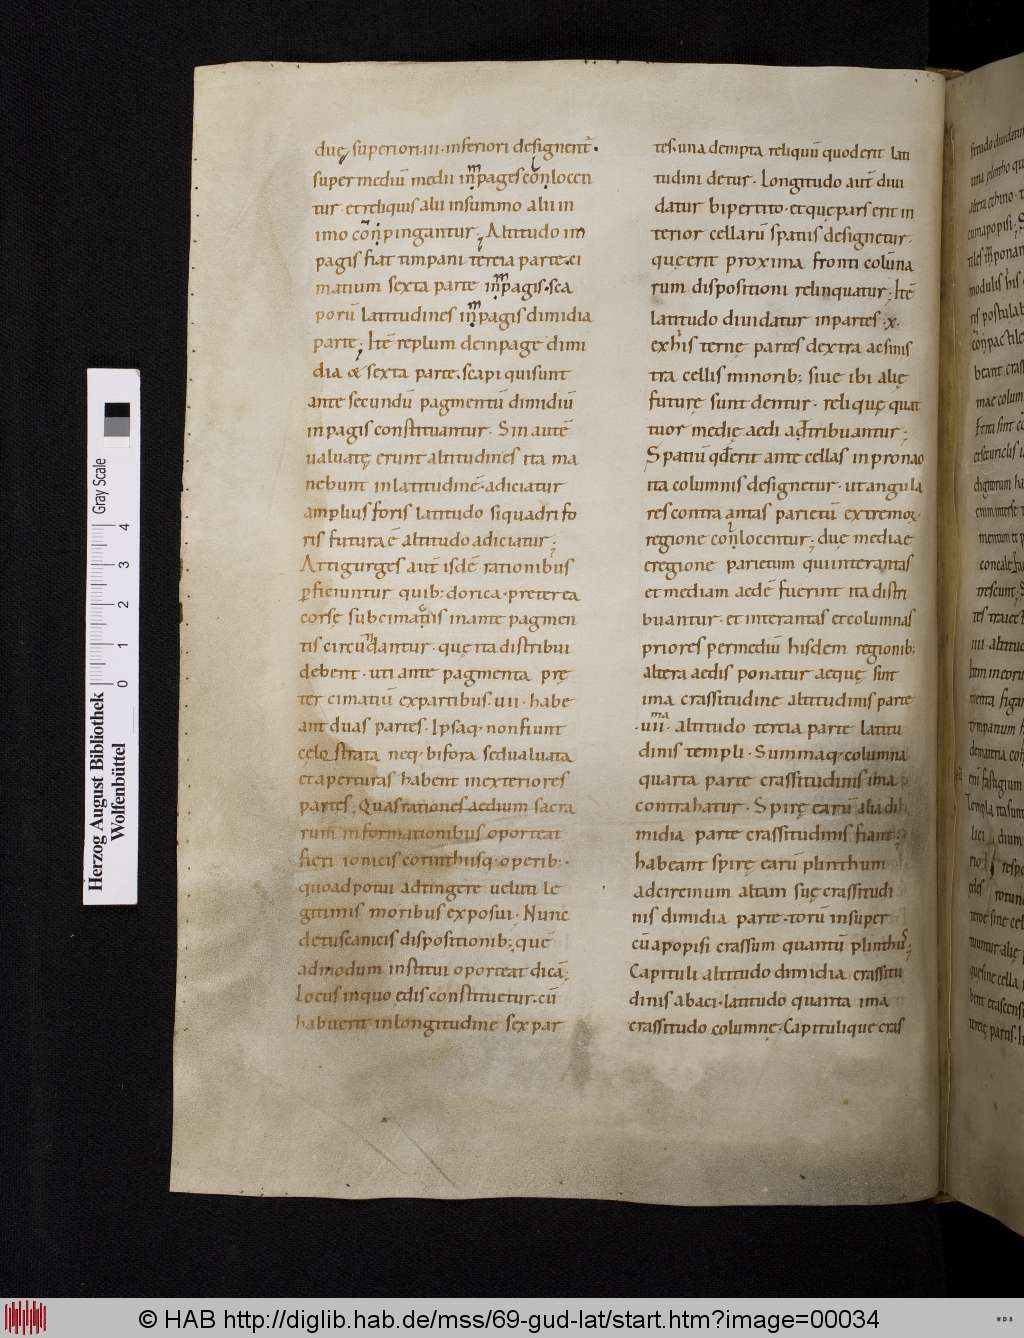 duę superiori·iii·inferiori designent᷒·
super mediū medii īpages conlocen
tur· et reliquis alii insummo alii in
imo conpingantur; Altitudo im
pagis fiat timpani tercia parte·ci
matium sexta parte inpagis·sca
porū latitudines inpagis dimidia
parte; Itē replum deinpage dimi
dia & sexta parte·scapi quisunt
ante secundū pagmentū dimidiū
inpagis constituantur· Sin autē
ualuatę erunt altitudines ita ma
nebunt inlatitudinē·adiciatur
amplius foris latitudo siquadrifo
ris futura ē altitudo adiciatur;
Attigurges aut̄ isdē rationibus
ꝑficiuntur quib; dorica·preterea
corsę subcimatiis inante pagmen
tis circūdantur· quę ita distribui
debent· uti ante pagmenta prę
ter cimatiū expartibus·vii· habe
ant duas partes· Ipsaq· nonfiunt
celostrata neq· bifora sedualuata
et aperturas habent inexteriores
partes; Quas rationes aedium sacra
rum informationibus oporteat
fieri ionicis corinthiisq· operib;·
quoad potui adtingere ueluti le
gitimis moribus exposui· Nunc
detuscanicis dispositionib; quē
admodum institui oporteat dicā;
Locus inquo ędis constituetur·cū
habuerit inlongitudine sex par
tes·una dempta reliquū quoderit lati
tudini detur· Longitudo aut̄ diui
datur bipertito· et quępars erit in
terior cellarū spatiis designetur·
quęerit proxima fronti colūna
rum dispositioni relinquatur; Itē
latitudo diuidatur inpartes·x·
exhis ternę partes dextra ac sinis
tra cellis minorib; siue ibi alię
futurę sunt dentur· reliquę quat
tuor medię aedi adtribuantur;
Spatiū qđerit ante cellas in pronao
ita columnis designetur· ut angula
res contra antas parietū extremoꝝ
regione conlocentur; duę mediae
eregione parietum quiinterantas
et mediam aedē fuerint ita distri
buantur· et interantas et columnas
priores permediū hisdem regionib;
altera aedis ponatur aequę sint
ima crassitudine altitudinis parte
·vii·ma altitudo tercia parte latitu
dinis templi· Summaq· columna
quarta parte crassitudinis ima
contrahatur· Spirę earū alta di
midia parte crassitudinis fiant;
habeant spirę earū plinthum
adcircinum altam suę crassitudi
nis dimidia parte·torū insuper
cū apopisi crassum quantū plinthus;
Capituli altitudo dimidia crassitu
dinis abaci·latitudo quanta ima
crassitudo columnę·Capitulique cras
Herzog August Bibliothek
Wolfenbüttel
Gray Scale
0 1 2 3 4
© HAB http://diglib.hab.de/mss/69-gud-lat/start.htm?image=00034